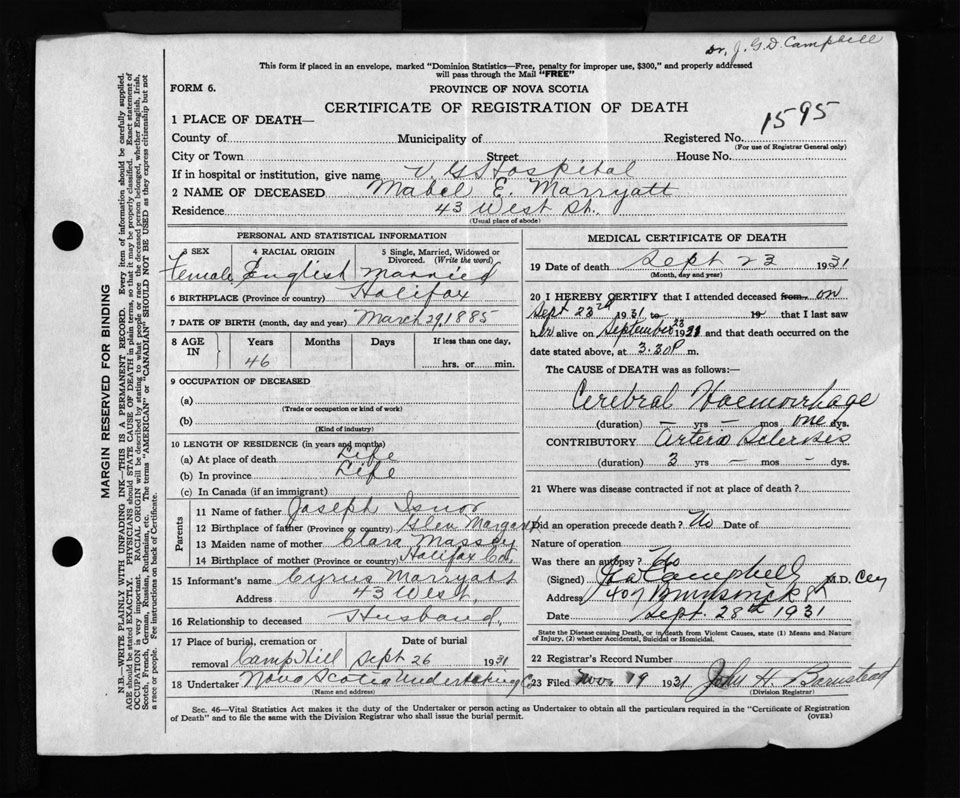 Dr. J. G. D. Campbell
This form if placed in an envelope, marked "Dominion Statistics—Free, penalty for improper use, $300," and properly addressed
will pass through the Mail "FREE"
FORM 6.
PROVINCE OF NOVA SCOTIA
CERTIFICATE OF REGISTRATION OF DEATH
1595
1 PLACE OF DEATH—
County of Municipality of Registered No.
(For use of Registrar General only)
City or Town Street House No.
If in hospital or institution, give name V. G. Hospital
2 NAME OF DECEASED Mabel E. Marryatt
Residence 43 West St.
(Usual place of abode)
PERSONAL AND STATISTICAL INFORMATION
3 SEX 4 RACIAL ORIGIN 5 Single, Married, Widowed or Divorced. (Write the word)
Female English Married
6 BIRTHPLACE (Province or country) Halifax
7 DATE OF BIRTH (month, day and year) March 29, 1885
8 AGE IN Years Months Days If less than one day,
46 hrs. or min.
9 OCCUPATION OF DECEASED
(a)
(Trade or occupation or kind of work)
(b)
(Kind of industry)
10 LENGTH OF RESIDENCE (in years and months)
(a) At place of death Life
(b) In province Life
(c) In Canada (if an immigrant)
Parents
11 Name of father Joseph Isnor
12 Birthplace of father (Province or country) Glen Margaret
13 Maiden name of mother Clara Massey
14 Birthplace of mother (Province or country) Halifax Co.
15 Informant's name Cyrus Marryatt
Address 43 West
16 Relationship to deceased Husband
17 Place of burial, cremation or removal Date of burial
Camp Hill Sept 26 1931
18 Undertaker Nova Scotia Undertaking Co
(Name and address)
MEDICAL CERTIFICATE OF DEATH
19 Date of death Sept 23 1931
(Month, day and year)
20 I HEREBY CERTIFY that I attended deceased from on
Sept 23rd 1931 to 19 that I last saw
her alive on September 23 1931 and that death occurred on
date stated above, at 3.30 P m.
The CAUSE of DEATH was as follows:—
Cerebral Haemorrhage
(duration) — yrs — mos one dys.
CONTRIBUTORY Arterio Sclerosis
(duration) 3 yrs — mos — dys.
21 Where was disease contracted if not at place of death?
Did an operation precede death? No Date of
Nature of operation
Was there an autopsy? No
(Signed) Campbell M.D.
Address 407 Brunswick St
Date Sept. 28th 1931
State the Disease causing Death, or in death from Violent Causes, state (1) Means and Nature
of Injury, (2) whether Accidental, Suicidal or Homicidal.
22 Registrar's Record Number
23 Filed Nov 19 1931 John H. Barnstead
(Division Registrar)
Sec. 46—Vital Statistics Act makes it duty of the Undertaker or person acting as Undertaker to obtain all the particulars required in the "Certificate of Registration
of Death" and to file the same with the Division Registrar who shall issue the burial permit.
(OVER)
MARGIN RESERVED FOR BINDING
N.B.—WRITE PLAINLY WITH UNFADING INK—THIS IS A PERMANENT RECORD. Every item of information should be carefully supplied.
AGE should be stated EXACTLY. PHYSICIANS should STATE CAUSE OF DEATH in plain terms, so that it may be properly classified. Exact statement of
OCCUPATION is very important. RACIAL ORIGIN will be described by stating to what people or race the deceased person belonged, whether English, Irish,
Scotch, French, German, Russian, Ruthenian, etc. The terms "AMERICAN" or "CANADIAN" SHOULD NOT BE USED as they express citizenship but not
a race or people. See instructions on back of Certificate.